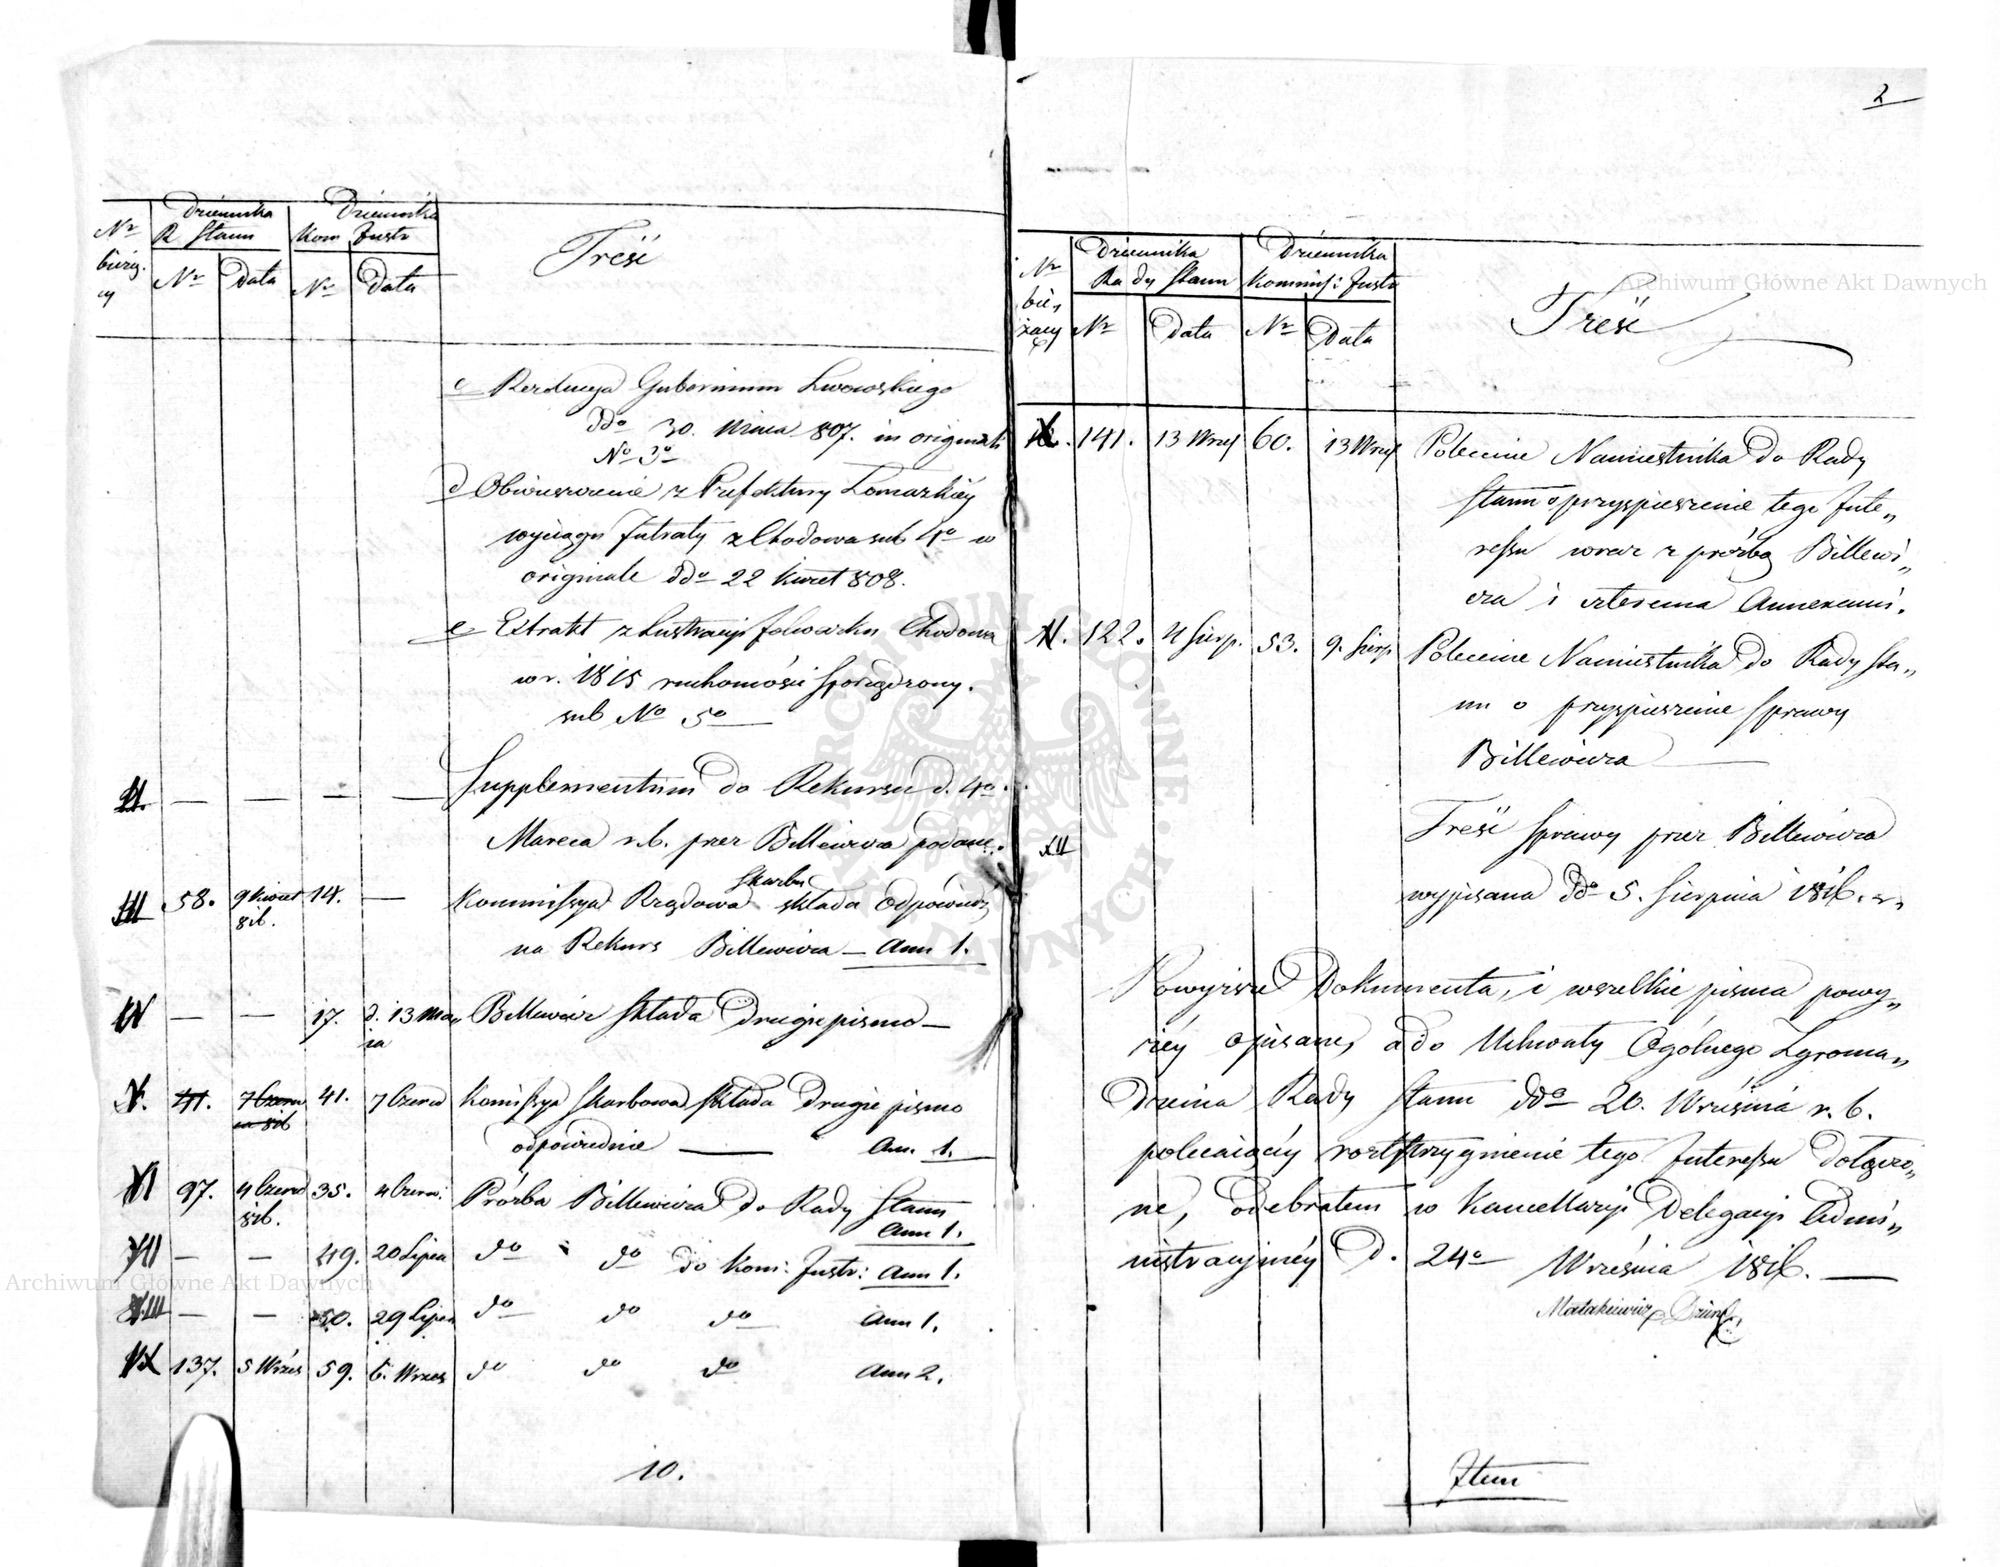 Nr bieżący | Dziennika R Stanu Nr Data | Dziennika Kom Justr Nr Data | Treść
c Gubernium Lwowskiego
ddo 30. Marca 807. in originali
No 3o
d Obwieszczenie z Prefektury Łomzkiéy
wyciągu Intraty z Chodowa sub 4o w
originale ddo 22 Kwiet 808.
e Extrakt z Lustracyi folwarku Chodowa
w r. 1815 ruchomości sporządzony.
sub No 5o
II. — — — — Supplementum do Rekursu d. 4o
Marca r.b. przez Billewicza podane.
III 58. 9 Kwiet 816. 14. — Kommissya Rządowa Skarbu składa Odpowiedź
na Rekurs Billewicza — Ann 1.
IV — — 17. d. 13 Maja Billewicz składa Drugie pismo —
V. 41. 7 Czerwca 816 41. 7 Czerwca Komissya Skarbowa składa Drugie pismo
odpowiednie — Ann. 1.
VI 97. 4 Czerw 816. 35. 4 Czerw. Prośba Billewicza do Rady Stanu
Ann 1.
VII — — 49. 20 Lipca do do do Kom: Justr: Ann 1.
VIII — — 50. 29 Lipca do do do Ann 1.
IX 137. 5 Wrześ 59. 6. Wrzes do do do Ann 2.
10.
2
Nr bieżący | Dziennika Rady Stanu Nr Data | Dziennika Kommiss: Justr Nr Data | Treść
X. 141. 13 Wrześ 60. 13 Wrześ Polecenie Namiestnika do Rady
Stanu o przyspieszenie tego Inte„
ressu wraz z prośbą Billewi„
cza i czterema Annexami.
XI. 122. 4 Sierp. 53. 9. Sierp Polecenie Namiestnika do Rady Sta„
nu o przyspieszenie sprawy
Billewicza —
XII Treść sprawy przez Billewicza
wypisana ddo 5. Sierpnia 1816. r„
Powyższe Dokumenta, i wszelkie pisma powy„
żéy opisane, a do Uchwały Ogólnego Zgroma„
dzenia Rady Stanu ddo 20. Września r. b.
polecaiącéy rozstrzygnienie tego Interessu dołączo„
ne, odebrałem w Kancellaryi Delegacyi Admi„
nistracyinéy D. 24o Września 1816. —
Item
Archiwum Główne Akt Dawnych
Archiwum Główne Akt Dawnych
ARCHIWUM GŁÓWNE AKT DAWNYCH